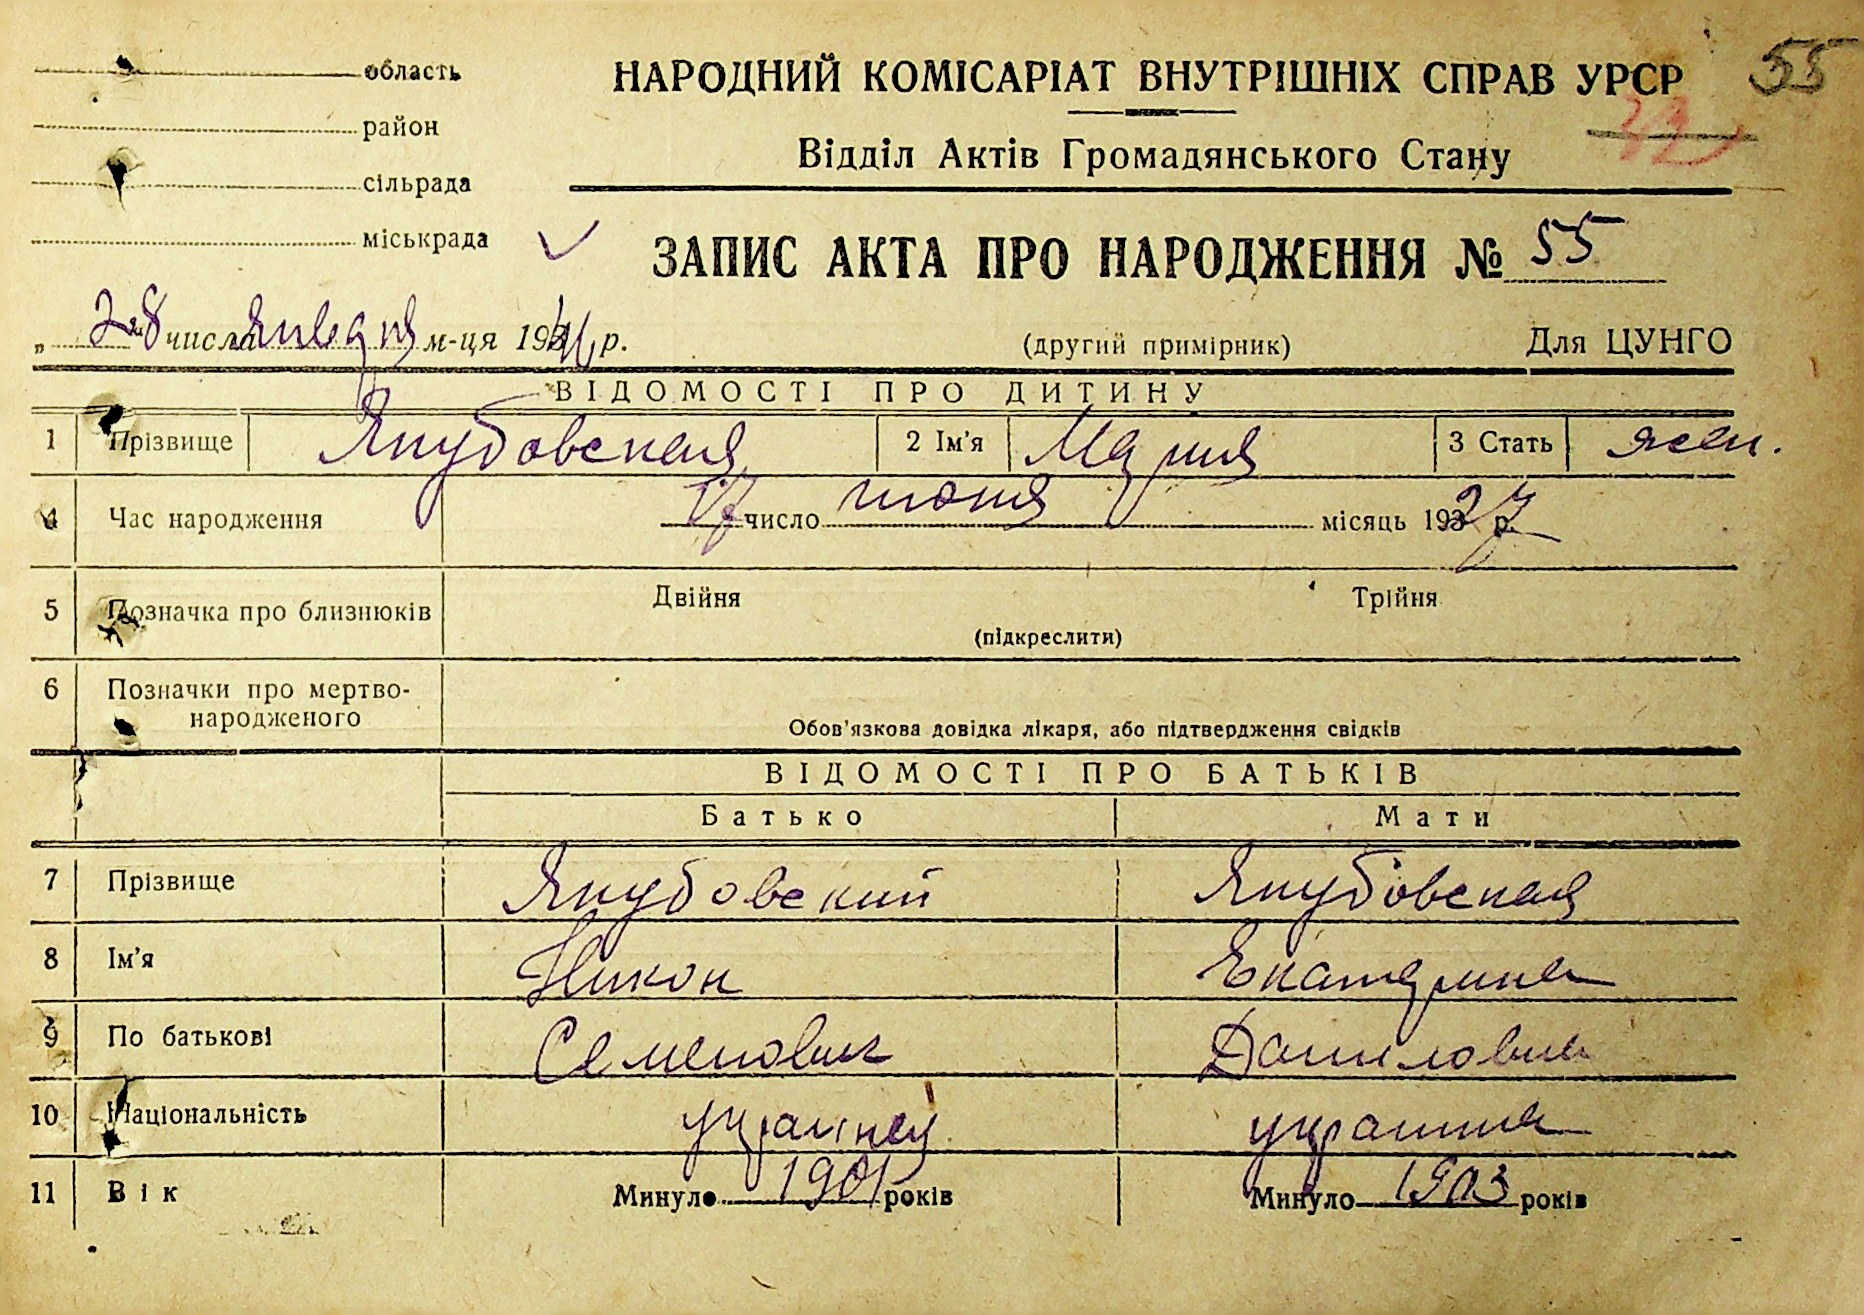 область
НАРОДНИЙ КОМІСАРІАТ ВНУТРІШНІХ СПРАВ УРСР 55
район
Відділ Актів Громадянського Стану
сільрада
міськрада
ЗАПИС АКТА ПРО НАРОДЖЕННЯ № 55
„ 28 числа января м-ця 1944 р. (другий примірник) Для ЦУНГО
ВІДОМОСТІ ПРО ДИТИНУ
1 Прізвище Якубовская 2 Ім'я Мария 3 Стать жен.
4 Час народження 17 число июня місяць 1927 р.
5 Позначка про близнюків Двійня Трійня
(підкреслити)
6 Позначки про мертво-
народженого
Обов'язкова довідка лікаря, або підтвердження свідків
ВІДОМОСТІ ПРО БАТЬКІВ
Батько Мати
7 Прізвище Якубовский Якубовская
8 Ім'я Никон Екатерина
9 По батькові Семенович Даниловна
10 Національність украинец украинка
11 Вік Минуло 1901 років Минуло 1903 років